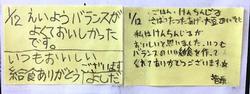 1/12 えいようバランスが
よくておいしかった
です。
いつもおいしい
給食ありがとうございます
よしだ
1/12 ・ごはん・けんちんじる
・さばのたつたあげ・大豆
私はけんちんじるが
おいしいと思いました。いつも
バランスのいい給食を作って
くれてありがとうございます。